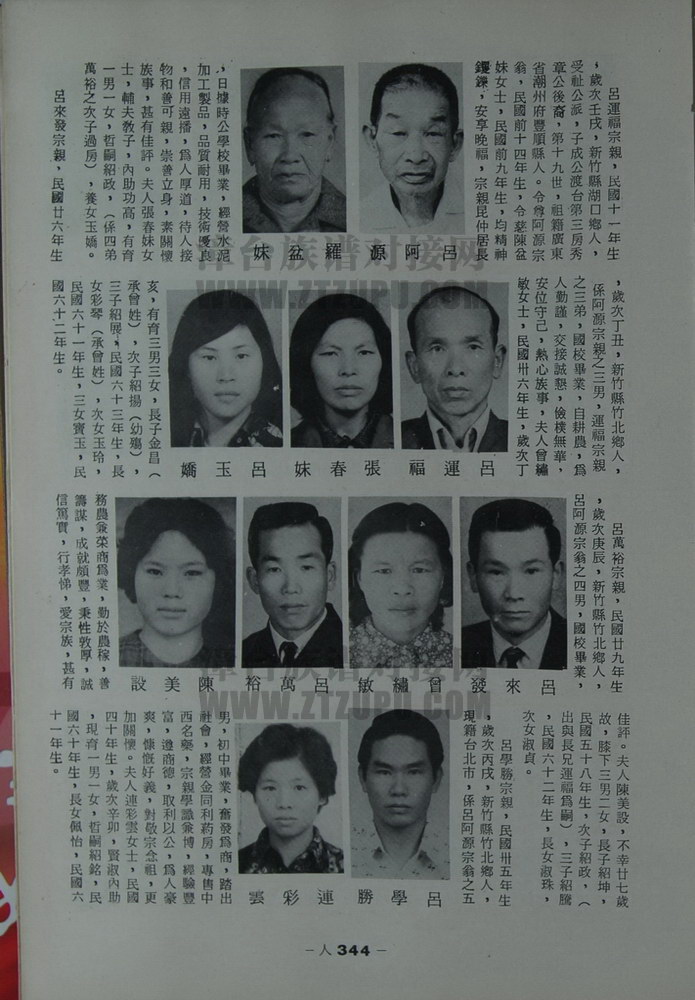 呂運福宗親，民國十一年生
，歲次壬戌，新竹縣湖口鄉人，
受祉公派，子成公渡台第三房秀
章公後裔，第十九世，祖籍廣東
省潮州府豐順縣人。令尊阿源宗
翁，民國前十四年生，令慈陳盆
妹女士，民國前九年生，均精神
鑊鑠，安享晚福，宗親昆仲居長
，日據時公學校畢業，經營水泥
加工製品，品質耐用，技術優良
，信用遠播，為人厚道，待人接
物和善可親，崇善立身，素關懷
族事，甚有佳評。夫人張春妹女
士，輔夫敎子，內助功高，有育
一男一女，哲嗣紹政，（係四弟
萬裕之次子過房），養女玉嬌。
呂來發宗親，民國廿六年生
妹盆羅 源阿呂
，歲次丁丑，新竹縣竹北鄉人，
係阿源宗親之三男，運福宗親
之三弟，國校畢業，自耕農，為
人勤謹，交接誠懇，儉樸無華，
安位守己，熱心族事，夫人曾繡
敏女士，民國卅六年生，歲次丁
亥，有育三男三女，長子金昌（
承曾姓），次子紹揚（幼殤），
三子紹展，民國六十三年生，長
女彩琴（承曾姓），次女玉玲，
民國六十一年生，三女寶玉，民
國六十二年生。
嬌玉呂 妹春張 福運呂
呂萬裕宗親，民國廿九年生
，歲次庚辰，新竹縣竹北鄉人，
呂阿源宗翁之四男，國校畢業，
務農兼菜商為業，勤於農稼，善
籌謀，成就頗豐，秉性敦厚，誠
信篤實，行孝悌，愛宗族，甚有
設美陳 裕萬呂 敏繡曾 發來呂
佳評。夫人陳美設，不幸廿七歲
故，膝下三男二女，長子紹坤，
民國五十八年生，次子紹政，（
出與長兄運福為嗣），三子紹騰
，民國六十二年生，長女淑珠，
次女淑貞。
呂學勝宗親，民國卅五年生
，歲次丙戌，新竹縣竹北鄉人，
現籍台北市，係呂阿源宗翁之五
男，初中畢業，奮發為商，踏出
社會，經營金同利葯房，專售中
西名藥，宗親學識兼博，經驗豐
富，遵商德，取利以公，為人豪
爽，慷慨好義，對敬宗念祖，更
加關懷。夫人連彩雲女士，民國
四十年生，歲次辛卯，賢淑內助
，現育一男一女，哲嗣紹銘，民
國六十年生，長女佩怡，民國六
十一年生。
雲彩連 勝學呂
－人344－
泽台族谱对接网
WWW.ZTZUPU.COM
泽台族谱对接网
WWW.ZTZUPU.COM